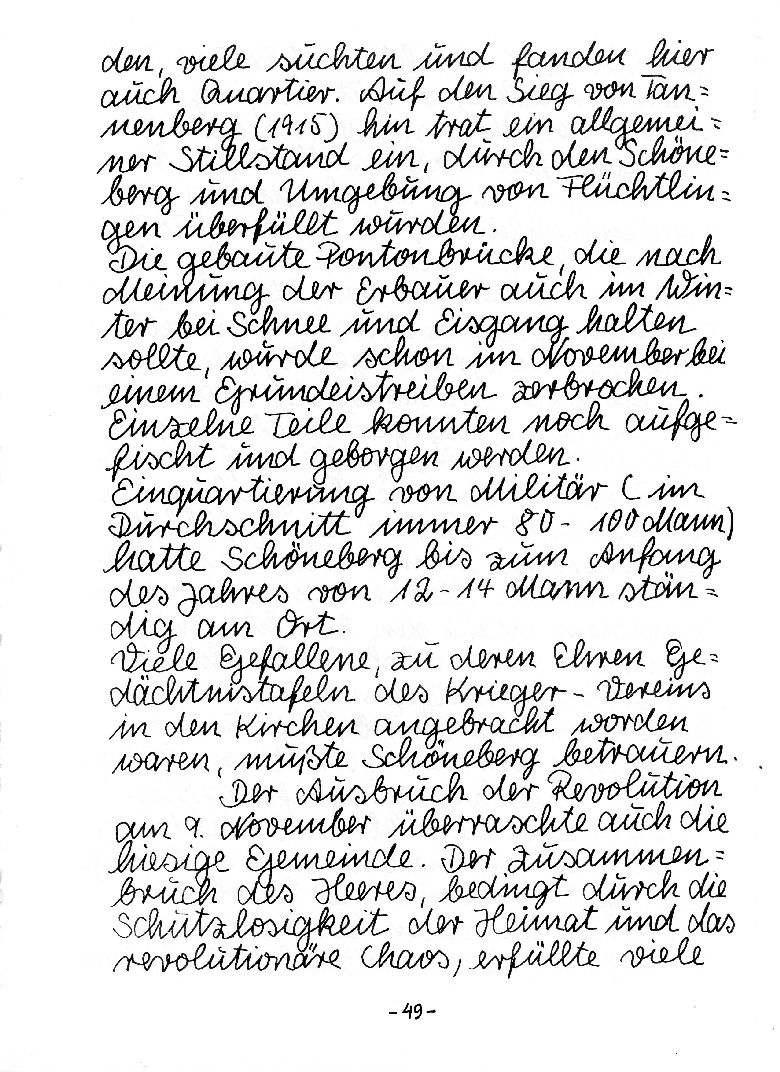 den, viele suchten und fanden hier
auch Quartier. Auf den Sieg von Tan=
nenberg (1915) hin trat ein allgemei=
ner Stillstand ein, durch den Schöne=
berg und Umgebung von Flüchtlin=
gen überfüllt wurden.
Die gebaute Pontonbrücke, die nach
Meinung der Erbauer auch im Win=
ter bei Schnee und Eisgang halten
sollte, wurde schon im November bei
einem Grundeistreiben zerbrochen.
Einzelne Teile konnten noch aufge=
fischt und geborgen werden.
Einquartierung von Militär (im
Durchschnitt immer 80 - 100 Mann)
hatte Schöneberg bis zum Anfang
des Jahres von 12 - 14 Mann stän=
dig am Ort.
Viele Gefallene, zu deren Ehren Ge=
dächtnistafeln des Krieger - Vereins
in den Kirchen angebracht worden
waren, mußte Schöneberg betrauern.
Der Ausbruch der Revolution
am 9. November überraschte auch die
hiesige Gemeinde. Der Zusammen=
bruch des Heeres, bedingt durch die
Schutzlosigkeit der Heimat und das
revolutionäre Chaos, erfüllte viele
- 49 -